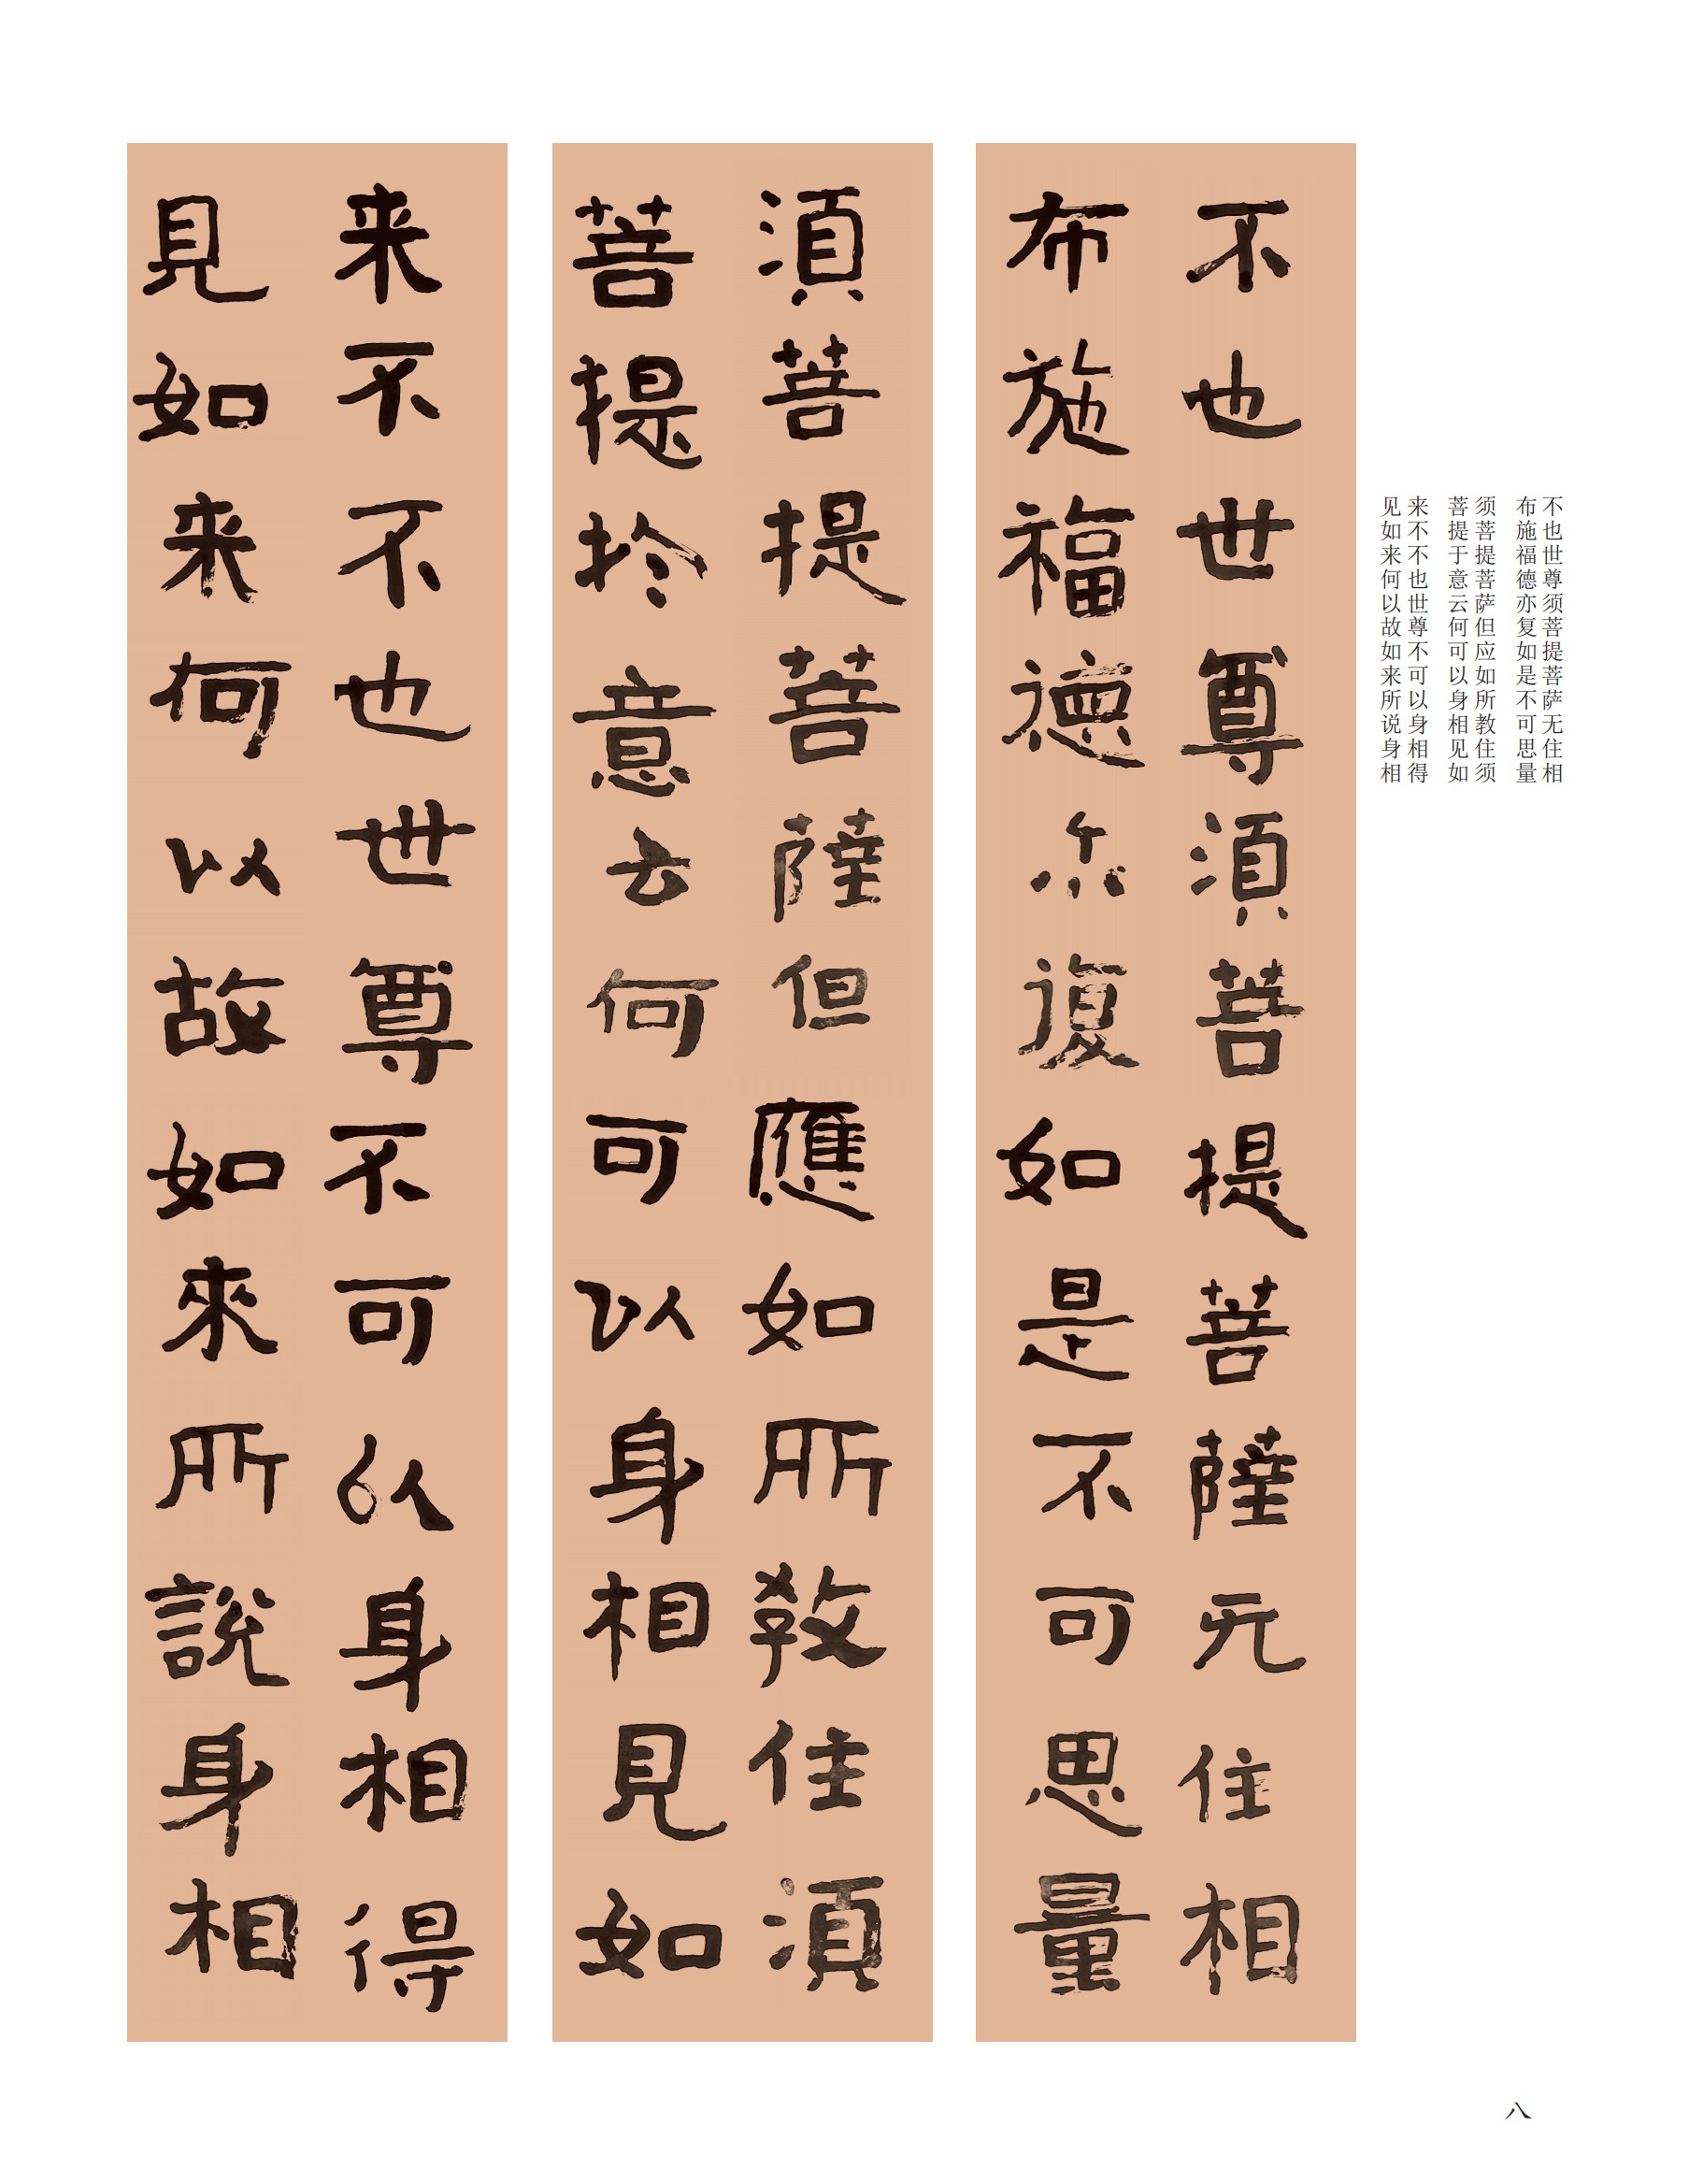 不也世尊須菩提菩薩无住相
布施福德亦復如是不可思量
須菩提菩薩但應如所教住須
菩提扵意云何可以身相見如
来不不也世尊不可以身相得
見如来何以故如來所說身相
不也世尊须菩提菩萨无住相
布施福德亦复如是不可思量
须菩提菩萨但应如所教住须
菩提于意云何可以身相见如
来不不也世尊不可以身相得
见如来何以故如来所说身相
八